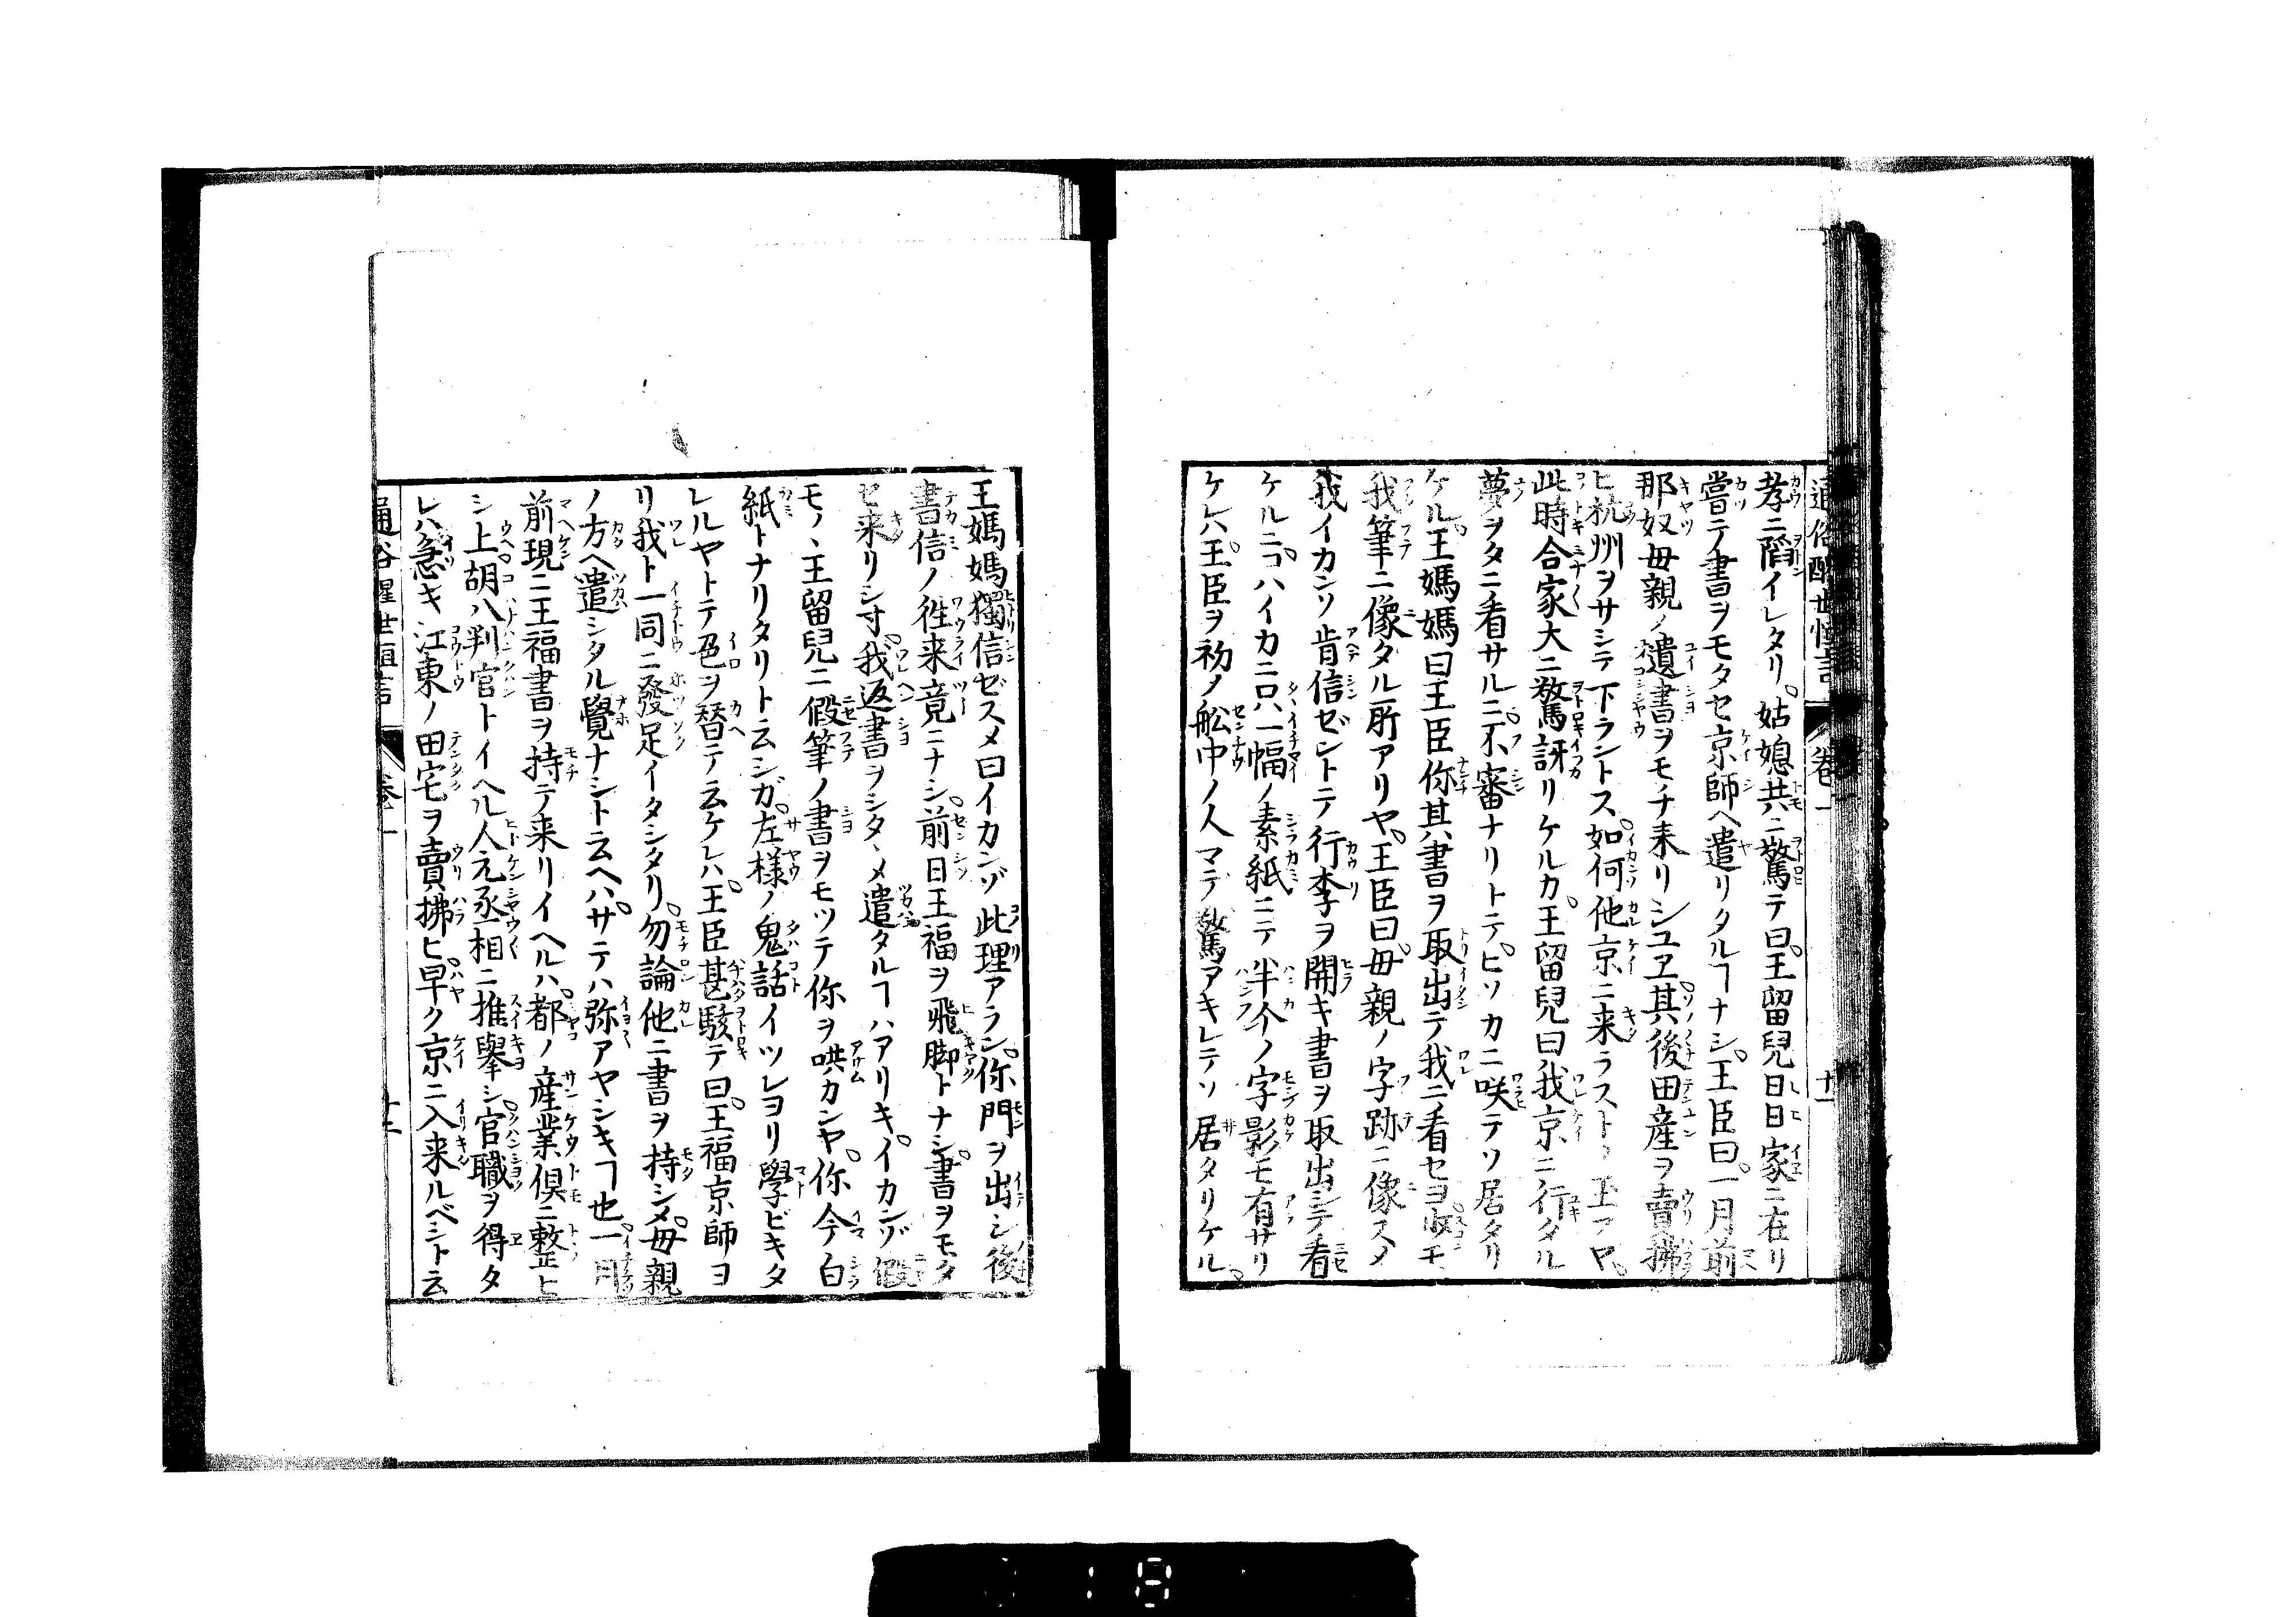 通俗醒世恒言 卷一 十一
孝ニ陷イレタリ。姑媳共ニ驚テ曰。王留兒日日家ニ在リ
嘗テ書ヲモタセ京師ヘ遣リタルヿナシ。王臣曰。一月前
那奴母親ノ遺書ヲモチ来リシユヱ。其後田産ヲ賣拂
ヒ杭州ヲサシテ下ラントス。如何他京ニ来ラスト
此時合家大ニ驚訝リケルカ。王留兒曰我京ニ行タル
夢ヲタニ看サルニ。不審ナリトテ。ヒソカニ咲テソ居タリ
ケル。王媽媽曰王臣你其書ヲ取出テ我ニ看セヨ。モ
我筆ニ像タル所アリヤ。王臣曰。母親ノ字跡ニ像スメ
我イカンソ肯信ゼントテ行李ヲ開キ書ヲ取出シテ看
ケルニ。コハイカニ只一幅ノ素紙ニテ半个ノ字影モ有サリ
ケレハ。王臣ヲ初メ舩中ノ人マデ驚アキレテソ居タリケル。
王媽媽獨信ゼスメ曰イカンゾ此理アラン。你門ヲ出シ後
書信ノ徃来竟ニナシ。前日王福ヲ飛脚トナシ。書ヲモタ
セ来リシ寸。我返書ヲシタヽメ遣タルヿハアリキ。イカンゾ假
モノヽ王留兒ニ假筆ノ書ヲモツテ你ヲ哄カンヤ。你今白
紙トナリタリト云シガ。左様ノ鬼話イツレヨリ學ビキタ
レルヤトテ色ヲ替テ云ケレハ。王臣甚駭テ曰。王福京師ヨ
リ我ト一同ニ發足イタシタリ。勿論他ニ書ヲ持シメ。母親
ノ方ヘ遣シタル覺ナシト云ヘハ。サテハ弥アヤシキヿ也。一月
前現ニ王福書ヲ持テ来リイヘルハ。都ノ産業倶ニ整ヒ
シ上。胡八判官トイヘル人元丞相ニ推擧シ。官職ヲ得タ
レハ。急キ江東ノ田宅ヲ賣拂ヒ。早ク京ニ入来ルベシト云
通俗醒世恒言 卷一 十二
18